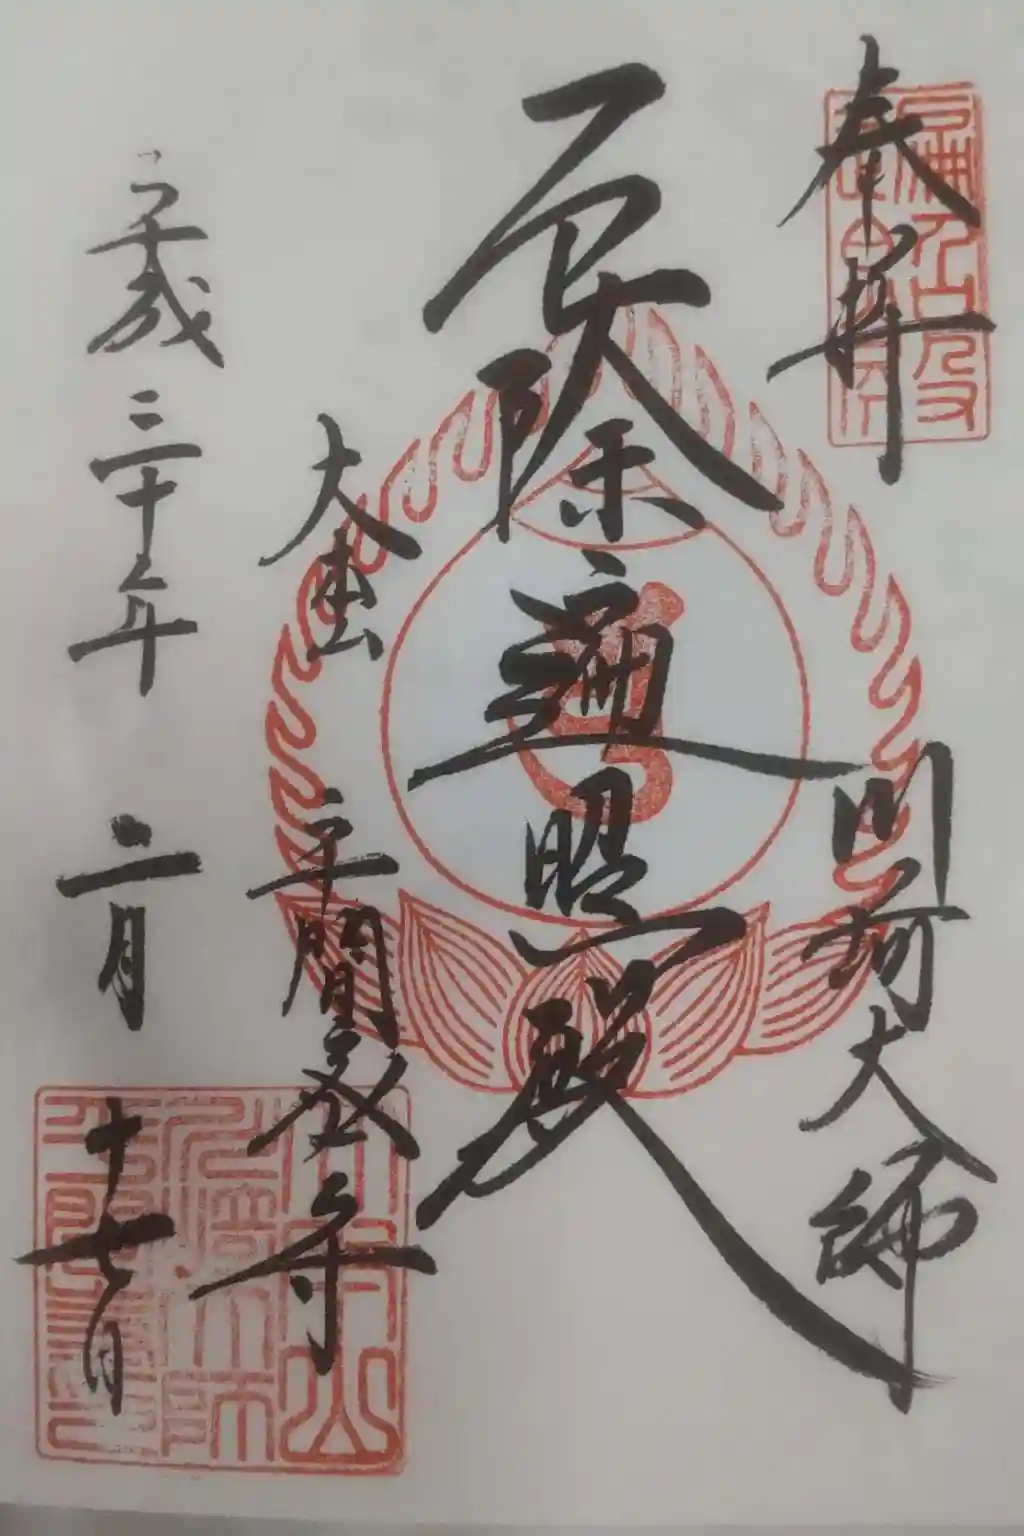 奉拝
川崎大師
厄除遍照殿
大本山
平間教寺
平成三十年二月十七日